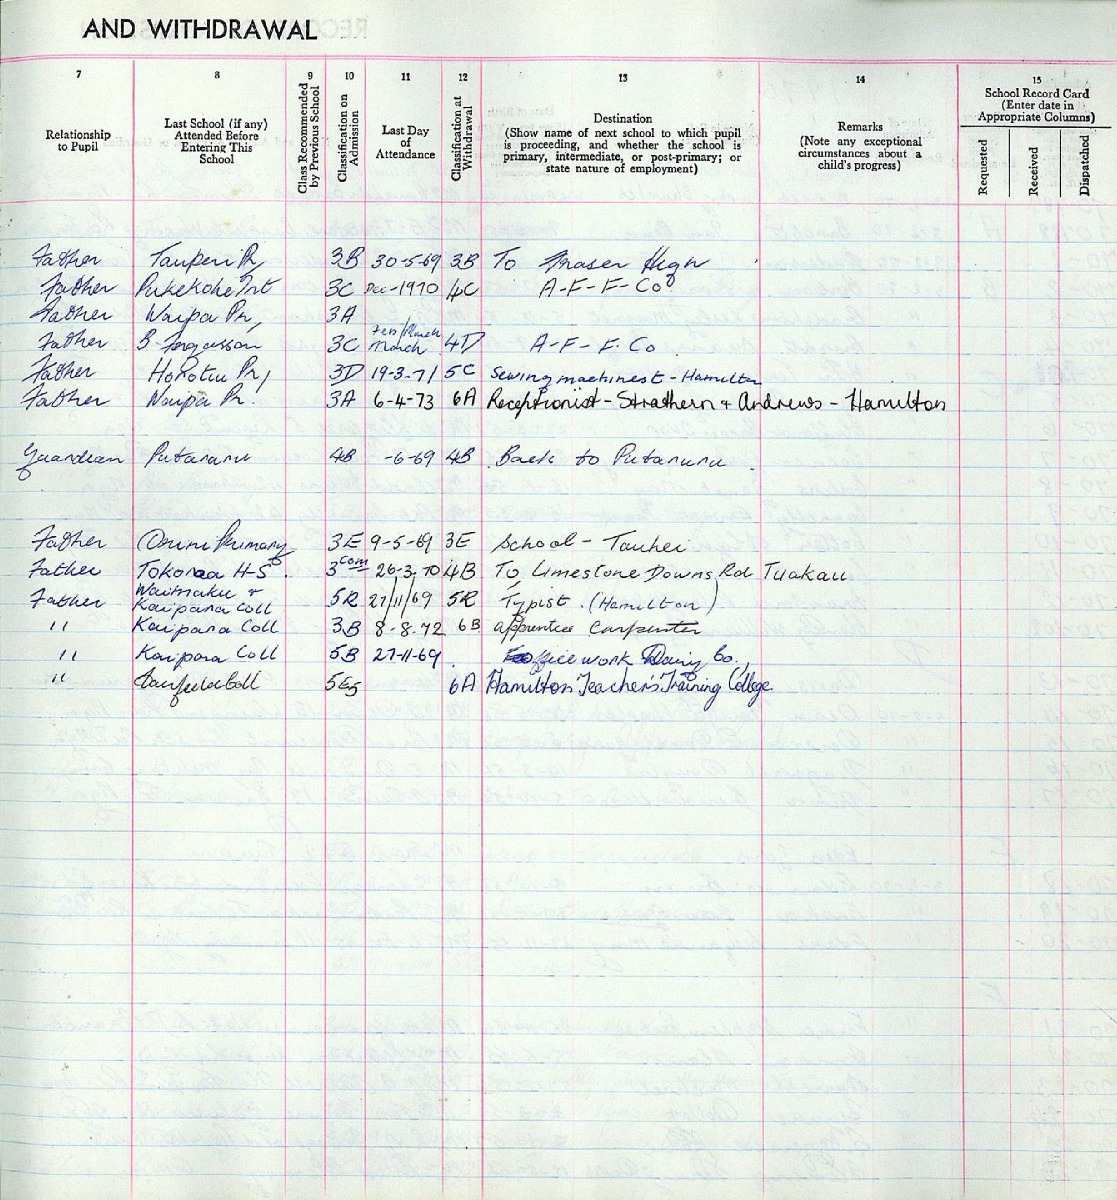 AND WITHDRAWAL
7 8 9 10 11 12 13 14 15
Relationship to Pupil
Last School (if any) Attended Before Entering This School
Class Recommended by Previous School
Classification on Admission
Last Day of Attendance
Classification at Withdrawal
Destination (Show name of next school to which pupil is proceeding, and whether the school is primary, intermediate, or post-primary; or state nature of employment)
Remarks (Note any exceptional circumstances about a child's progress)
School Record Card (Enter date in Appropriate Columns)
Requested Received Dispatched
Father Taupiri Pr, 3B 30-5-69 3B To Fraser High
Father Pukekohe Int 3C Dec-1970 4C A-F-F-Co
Father Waipa Pr, 3A
Father 3C Feb/March March 4D A-F-F-Co.
Father Horotiu Pr, 3D 19-3-71 5C Sewing machinest - Hamilton
Father Waipa Pr. 3A 6-4-73 6A Receptionist - Strathern + Andrews - Hamilton
Guardian Putaruru 4B -6-69 4B Back to Putaruru
Father Primary 3E 9-5-69 3E School - Tauhei
Father Tokoroa H-S. 3com 26-3-70 4B To Limestone Downs Rd Tuakau
Father Waimaku + Kaipara Coll 5R 27/11/69 5R Typist. (Hamilton)
" Kaipara Coll 3B 8-8-72 6B apprentice Carpenter
" Kaipara Coll 5B 27-11-69 Office work Dairy Co.
" 5E5 6A Hamilton Teacher's Training College.